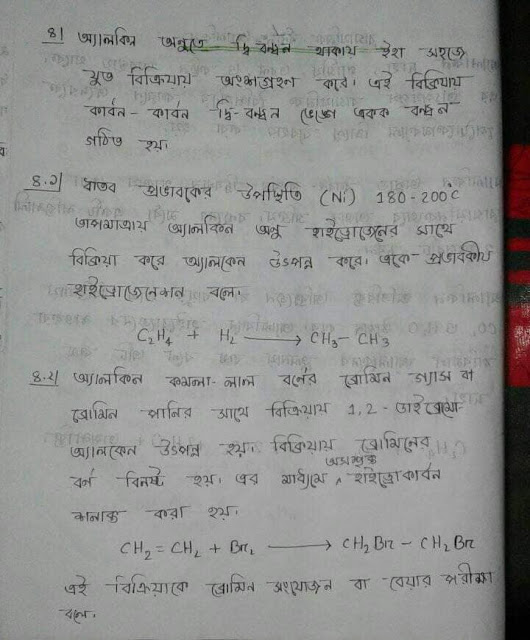 ৪। অ্যালকিন অনুতে দ্বি বন্ধন থাকায় ইহা সহজে
যুত বিক্রিয়ায় অংশগ্রহণ করে। এই বিক্রিয়ায়
কার্বন - কার্বন দ্বি-বন্ধন ভেঙ্গে একক বন্ধন
গঠিত হয়।
৪.১। ধাতব প্রভাবকের উপস্থিতি (Ni) 180-200°C
তাপমাত্রায় অ্যালকিন অনু হাইড্রোজেনের সাথে
বিক্রিয়া করে অ্যালকেন উৎপন্ন করে। একে প্রভাবকীয়
হাইড্রোজেনেশন বলে।
C₂H₄ + H₂ ⟶ CH₃- CH₃
৪.২। অ্যালকিন কমলা-লাল বর্নের ব্রোমিন গ্যাস বা
ব্রোমিন পানির সাথে বিক্রিয়ায় 1,2-ডাইব্রোমো-
অ্যালকেন উৎপন্ন হয়। বিক্রিয়ায় ব্রোমিনের
বর্ন বিনষ্ট হয়। এর মাধ্যমে অসম্পৃক্ত হাইড্রোকার্বন
শনাক্ত করা হয়।
CH₂ = CH₂ + Br₂ ⟶ CH₂Br - CH₂Br
এই বিক্রিয়াকে ব্রোমিন সংযোজন বা বেয়ার পরীক্ষা
বলে।